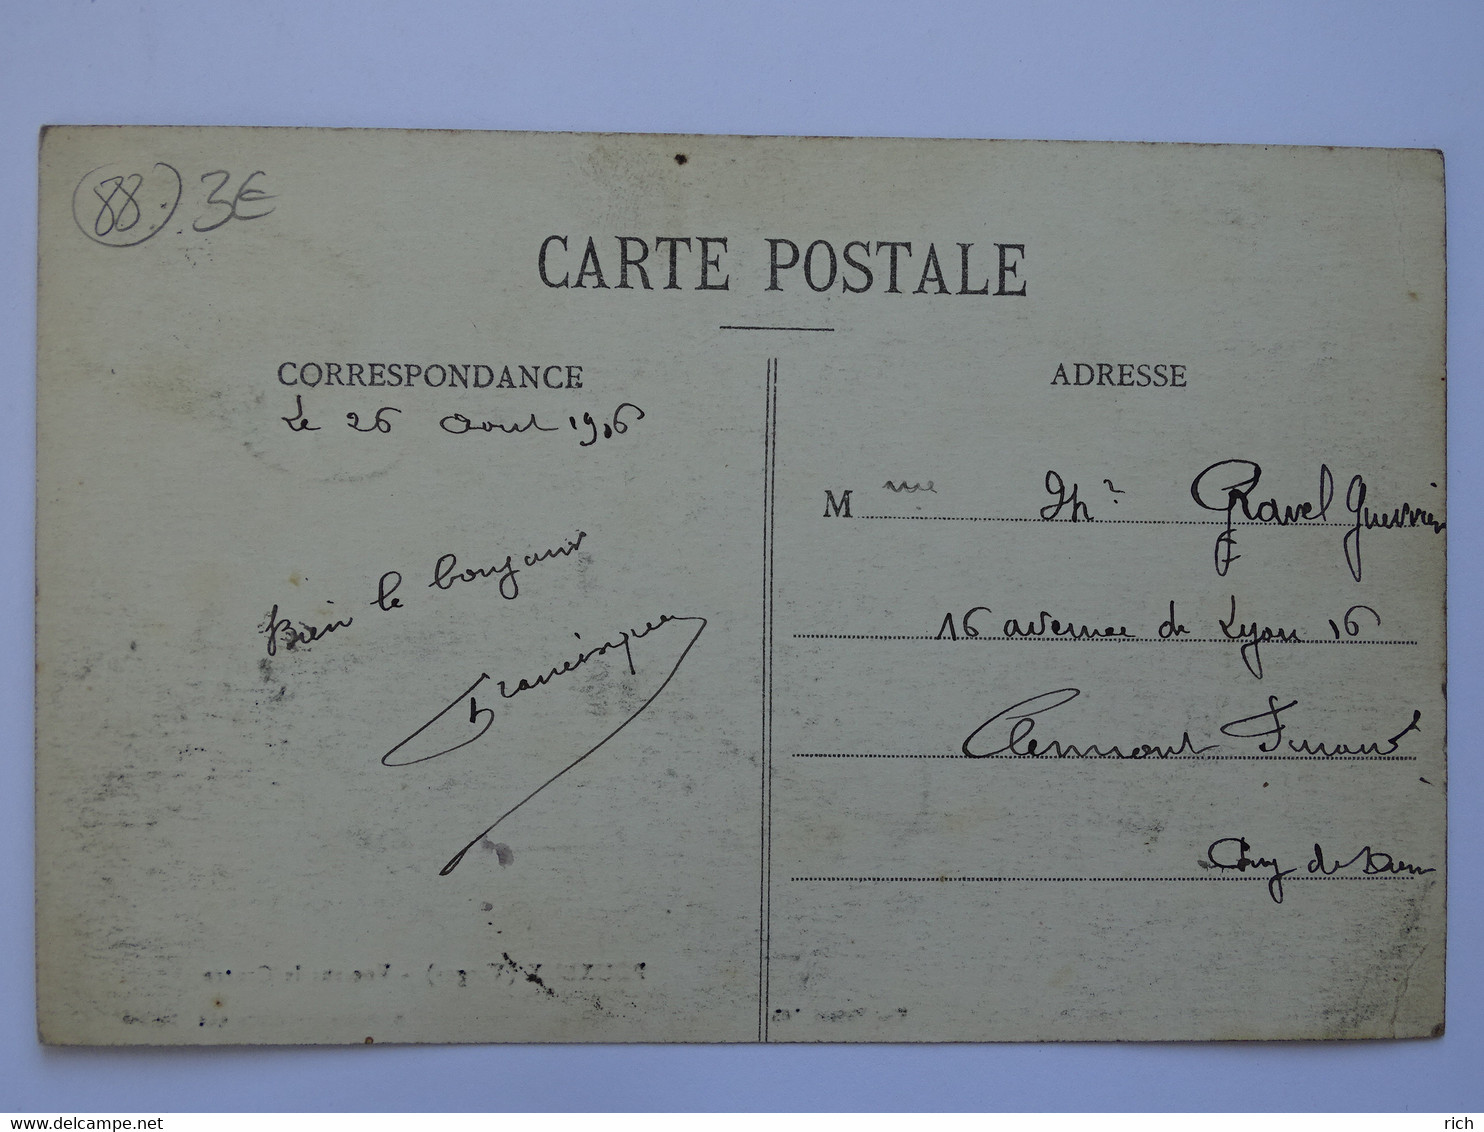 88 3€
CARTE POSTALE
CORRESPONDANCE
Le 26 Aout 1916
Bien le bonjour
Francisque
ADRESSE
Mme Th Ravel Guerrier
16 avenue de Lyon 16
Clermont Ferrand
Puy de Dome
delcampe.net
rich